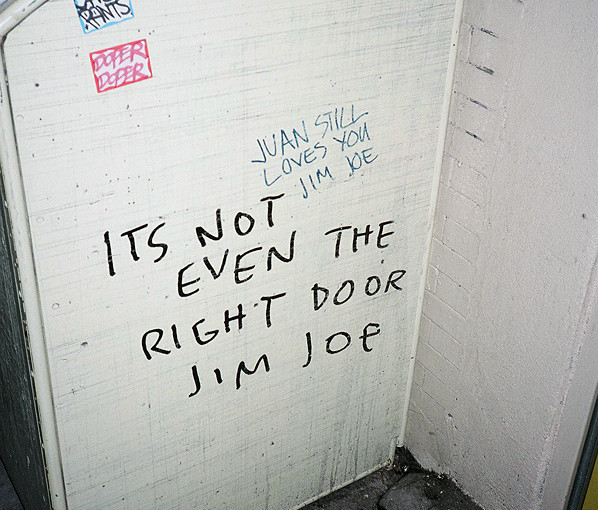 PANTS
DOPER
DOPER
JUAN STILL
LOVES YOU
JIM JOE
ITS NOT
EVEN THE
RIGHT DOOR
JIM JOE